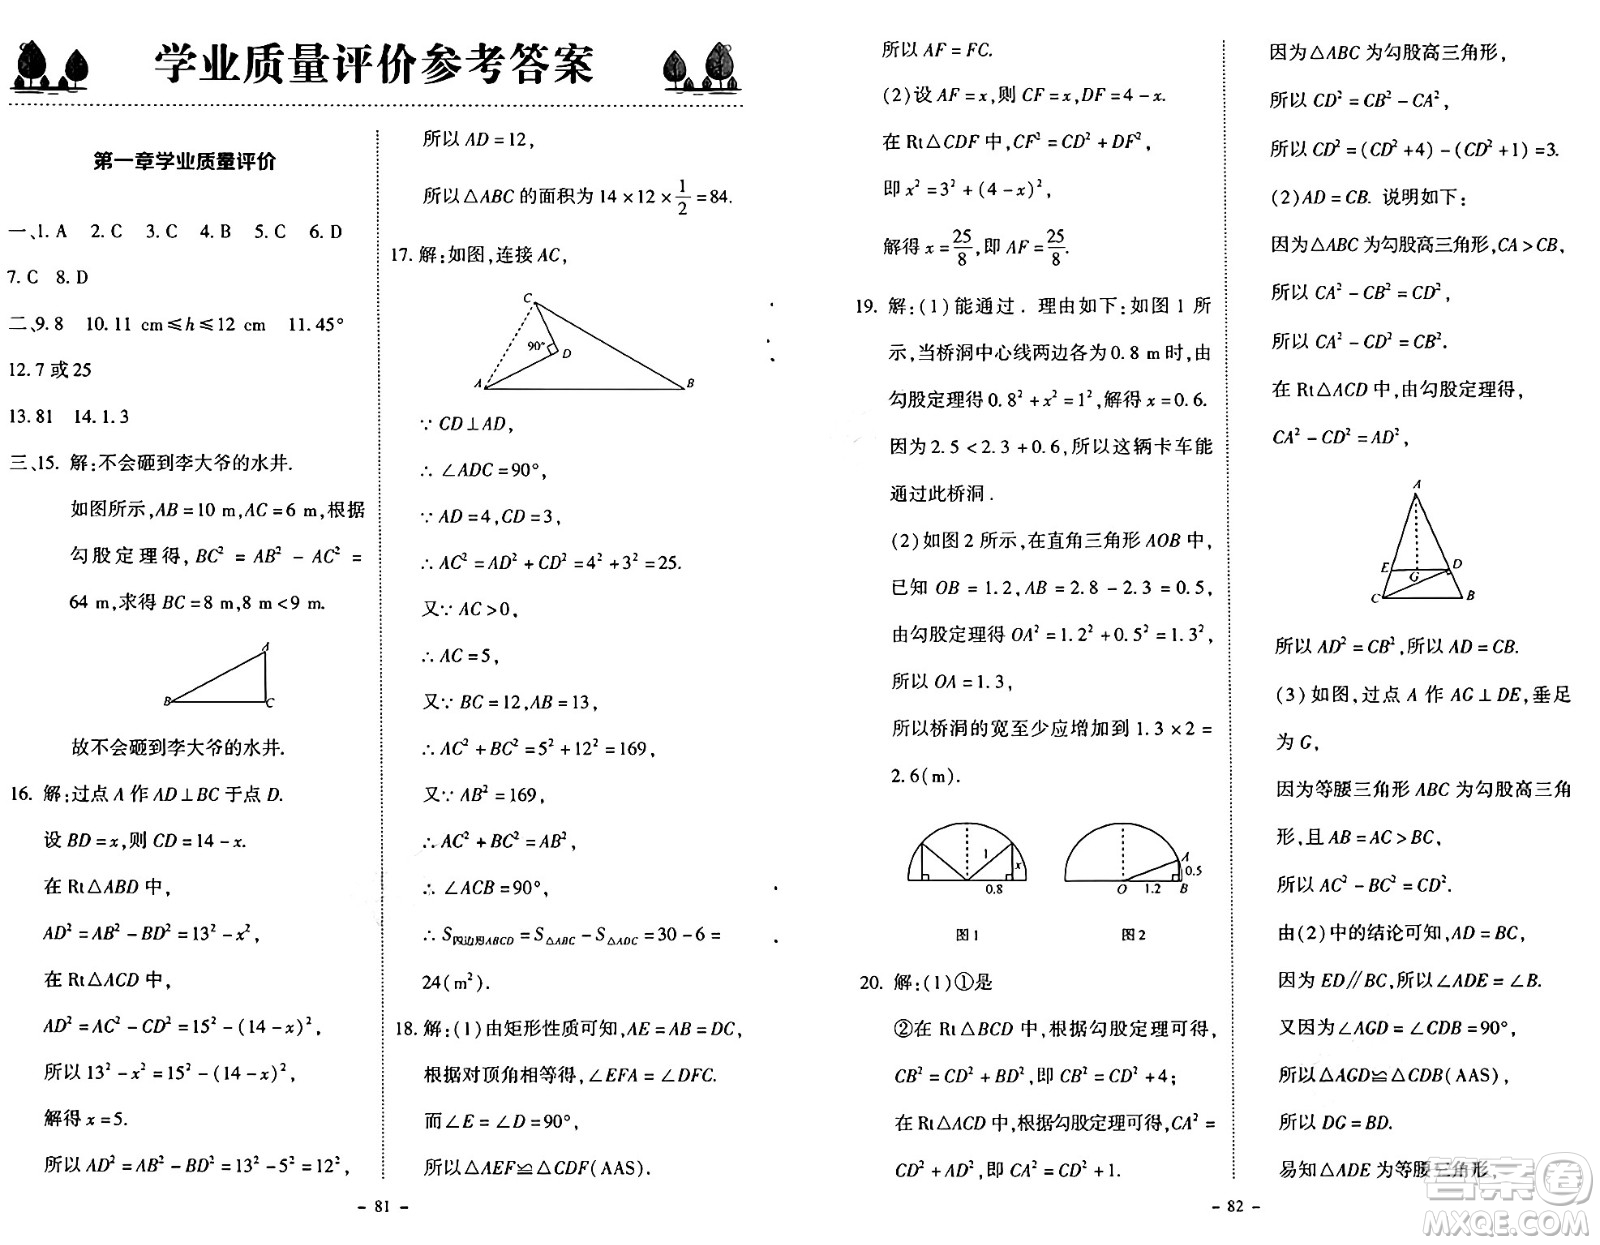 学业质量评价参考答案
第一章学业质量评价
一、1. A 2. C 3. C 4. B 5. C 6. D
7. C 8. D
二、9. 8 10. 11 cm≤h≤12 cm 11. 45°
12. 7 或 25
13. 81 14. 1. 3
三、15. 解:不会砸到李大爷的水井.
如图所示,AB=10 m,AC=6 m,根据
勾股定理得,BC²=AB²-AC²=
64 m,求得 BC=8 m,8 m<9 m.
A
B
C
故不会砸到李大爷的水井.
16. 解:过点 A 作 AD⊥BC 于点 D.
设 BD=x,则 CD=14-x.
在 Rt△ABD 中,
AD²=AB²-BD²=13²-x²,
在 Rt△ACD 中,
AD²=AC²-CD²=15²-(14-x)²,
所以 13²-x²=15²-(14-x)²,
解得 x=5.
所以 AD²=AB²-BD²=13²-5²=12²,
所以 AD=12,
所以△ABC 的面积为 14×12×1/2=84.
17. 解:如图,连接 AC,
C
90°
D
A
B
∵CD⊥AD,
∴∠ADC=90°,
∵AD=4,CD=3,
∴AC²=AD²+CD²=4²+3²=25.
又∵AC>0,
∴AC=5,
又∵BC=12,AB=13,
∴AC²+BC²=5²+12²=169,
又∵AB²=169,
∴AC²+BC²=AB²,
∴∠ACB=90°,
∴S四边形ABCD=S△ABC-S△ADC=30-6=
24(m²).
18. 解:(1)由矩形性质可知,AE=AB=DC,
根据对顶角相等得,∠EFA=∠DFC.
而∠E=∠D=90°,
所以△AEF≌△CDF(AAS).
- 81 -
所以 AF=FC.
(2)设 AF=x,则 CF=x,DF=4-x.
在 Rt△CDF 中,CF²=CD²+DF²,
即 x²=3²+(4-x)²,
解得 x=25/8,即 AF=25/8.
19. 解:(1)能通过. 理由如下:如图 1 所
示,当桥洞中心线两边各为 0.8 m 时,由
勾股定理得 0.8²+x²=1²,解得 x=0.6.
因为 2.5<2.3+0.6,所以这辆卡车能
通过此桥洞.
(2)如图 2 所示,在直角三角形 AOB 中,
已知 OB=1.2,AB=2.8-2.3=0.5,
由勾股定理得 OA²=1.2²+0.5²=1.3²,
所以 OA=1.3,
所以桥洞的宽至少应增加到 1.3×2=
2.6(m).
1 x 0.8
A 0.5 O 1.2 B
图 1 图 2
20. 解:(1)①是
②在 Rt△BCD 中,根据勾股定理可得,
CB²=CD²+BD²,即 CB²=CD²+4;
在 Rt△ACD 中,根据勾股定理可得,CA²=
CD²+AD²,即 CA²=CD²+1.
因为△ABC 为勾股高三角形,
所以 CD²=CB²-CA²,
所以 CD²=(CD²+4)-(CD²+1)=3.
(2)AD=CB. 说明如下:
因为△ABC 为勾股高三角形,CA>CB,
所以 CA²-CB²=CD²,
所以 CA²-CD²=CB².
在 Rt△ACD 中,由勾股定理得,
CA²-CD²=AD²,
A
E G D
C B
所以 AD²=CB²,所以 AD=CB.
(3)如图,过点 A 作 AG⊥DE,垂足
为 G,
因为等腰三角形 ABC 为勾股高三角
形,且 AB=AC>BC,
所以 AC²-BC²=CD².
由(2)中的结论可知,AD=BC,
因为 ED∥BC,所以∠ADE=∠B.
又因为∠AGD=∠CDB=90°,
所以△AGD≌△CDB(AAS),
所以 DG=BD.
易知△ADE 为等腰三角形,
- 82 -
答案圈
MXQE.COM